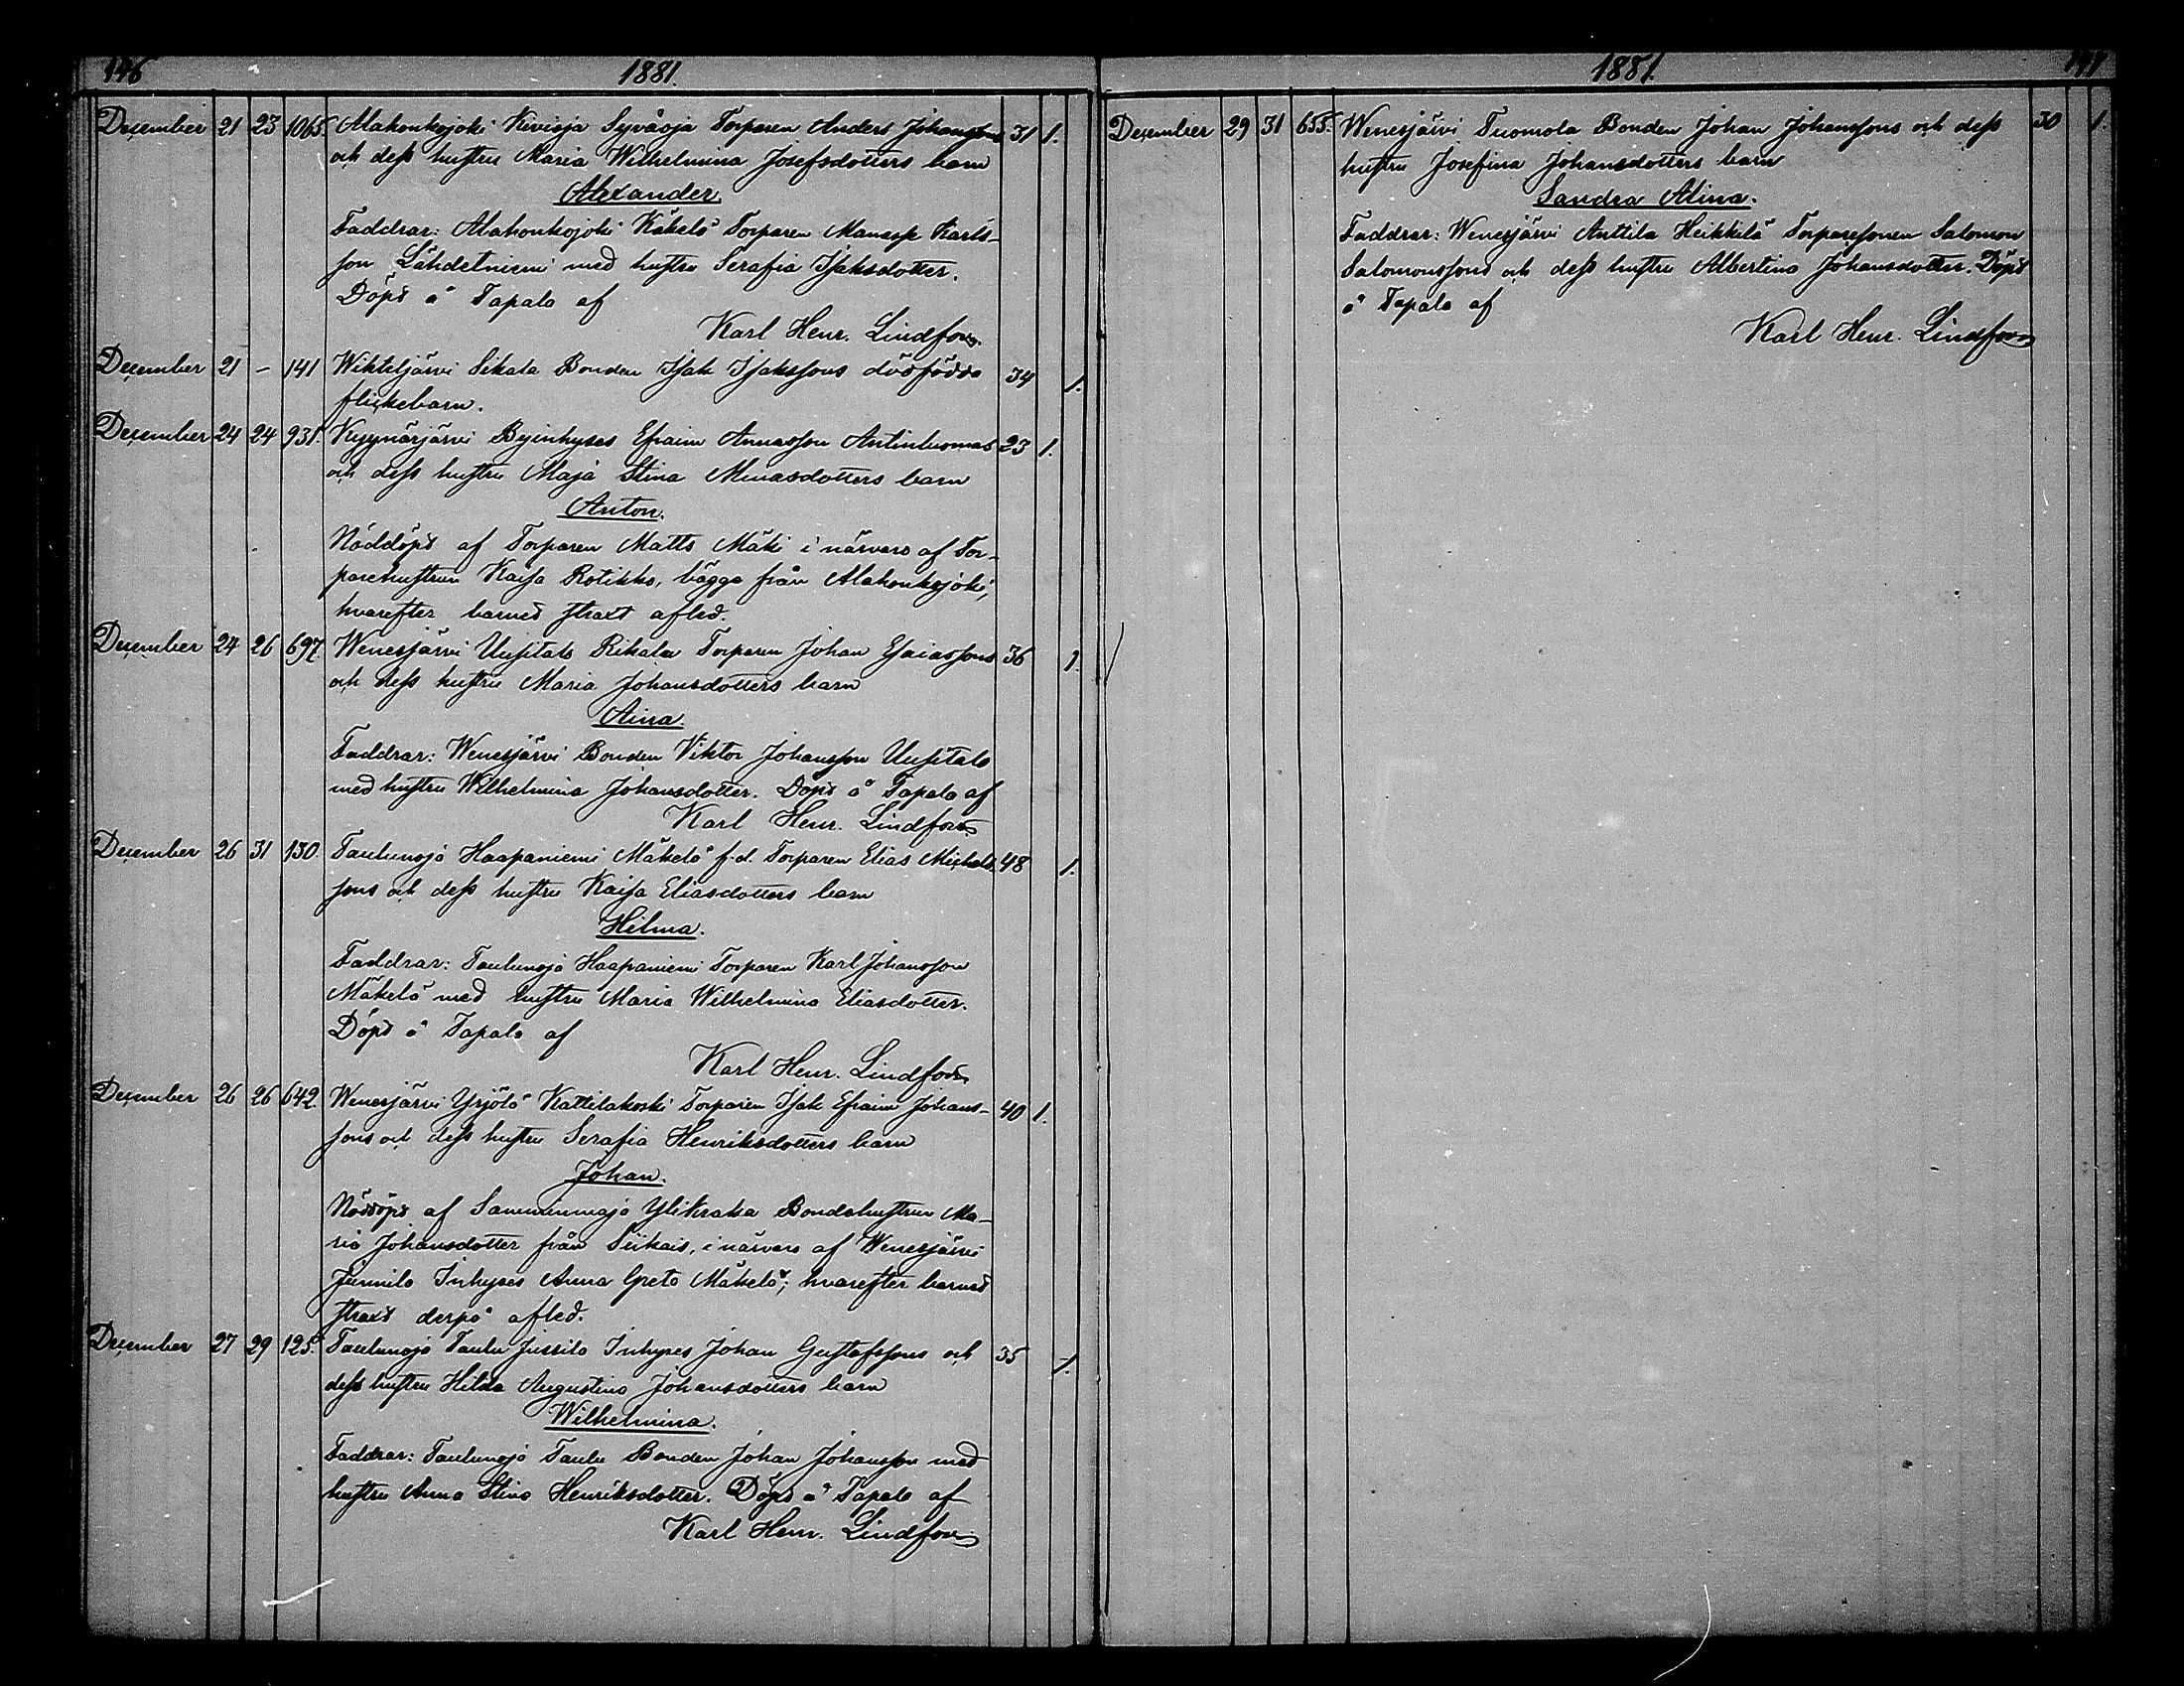 146 1881.
December 21 23 1065. Alahonkojoki Kivioja Syväoja Torparen Anders Johanssons 31 1.
och dess hustru Maria Wilhelmina Josefsdotters barn
Alexander.
Faddrar: Alahonkojoki Käkelä Torparen Manasse Karls-
son Lähdetniemi med hustru Serafia Isaksdotter.
Döpt å Tapala af
Karl Henr. Lindfors.
December 21 – 141 Wihteljärvi Sikala Bonden Isak Isakssons dödfödda 34 1.
flickebarn.
December 24 24 931. Kyynärjärvi Byinhyses Efraim Annasson Antintuomas 23 1.
och dess hustru Maja Stina Minasdotters barn
Anton.
Nöddöpt af Torparen Matts Mäki i närvaro af Tor-
parehustrun Kaisa Rotikko, bägge från Alahonkojoki,
hvarefter barnet straxt afled.
December 24 26 697. Wenesjärvi Uusitalo Rihala Torparen Johan Esaiassons 36 1.
och dess hustru Maria Johansdotters barn
Aina.
Faddrar: Wenesjärvi Bonden Viktor Johansson Uusitalo
med hustru Wilhelmina Johansdotter. Döpt å Tapala af
Karl Henr. Lindfors
December 26 31 130. Taulunoja Haapaniemi Mäkelä f.d. Torparen Elias Michels- 48 1.
sons och dess hustru Kaisa Eliasdotters barn
Hilma.
Faddrar: Taulunoja Haapaniemi Torparen Karl Johansson
Mäkelä med hustru Maria Wilhelmina Eliasdotter.
Döpt å Tapala af
Karl Henr. Lindfors
December 26 26 642. Wenesjärvi Yrjölä Kattilakoski Torparen Isak Efraim Johans- 40 1.
sons och dess hustru Serafia Henriksdotters barn
Johan.
Nöddöpt af Samminmaja Ylikraka Bondehustrun Ma-
ria Johansdotter från Siikais, i närvaro af Wenesjärvi
Junnila Inhyses Anna Greta Mäkelä; hvarefter barnet
straxt derpå afled.
December 27 29 125. Taulunoja Taulu Jussila Inhyses Johan Gustafssons och 35 1.
dess hustru Hilda Augustina Johansdotters barn
Wilhelmina.
Faddrar: Taulunoja Taulu Bonden Johan Johansson med
hustru Anna Stina Henriksdotter. Döpt å Tapala af
Karl Henr. Lindfors
1881. 147
December 29 31 655. Wenesjärvi Tuomola Bonden Johan Johanssons och dess 30 1.
hustru Josefina Johansdotters barn
Sandra Alina.
Faddrar: Wenesjärvi Anttila Heikkilä Torparesonen Salomon
Salomonssons och dess hustru Albertina Johansdotter. Döpt
å Tapala af
Karl Henr. Lindfors